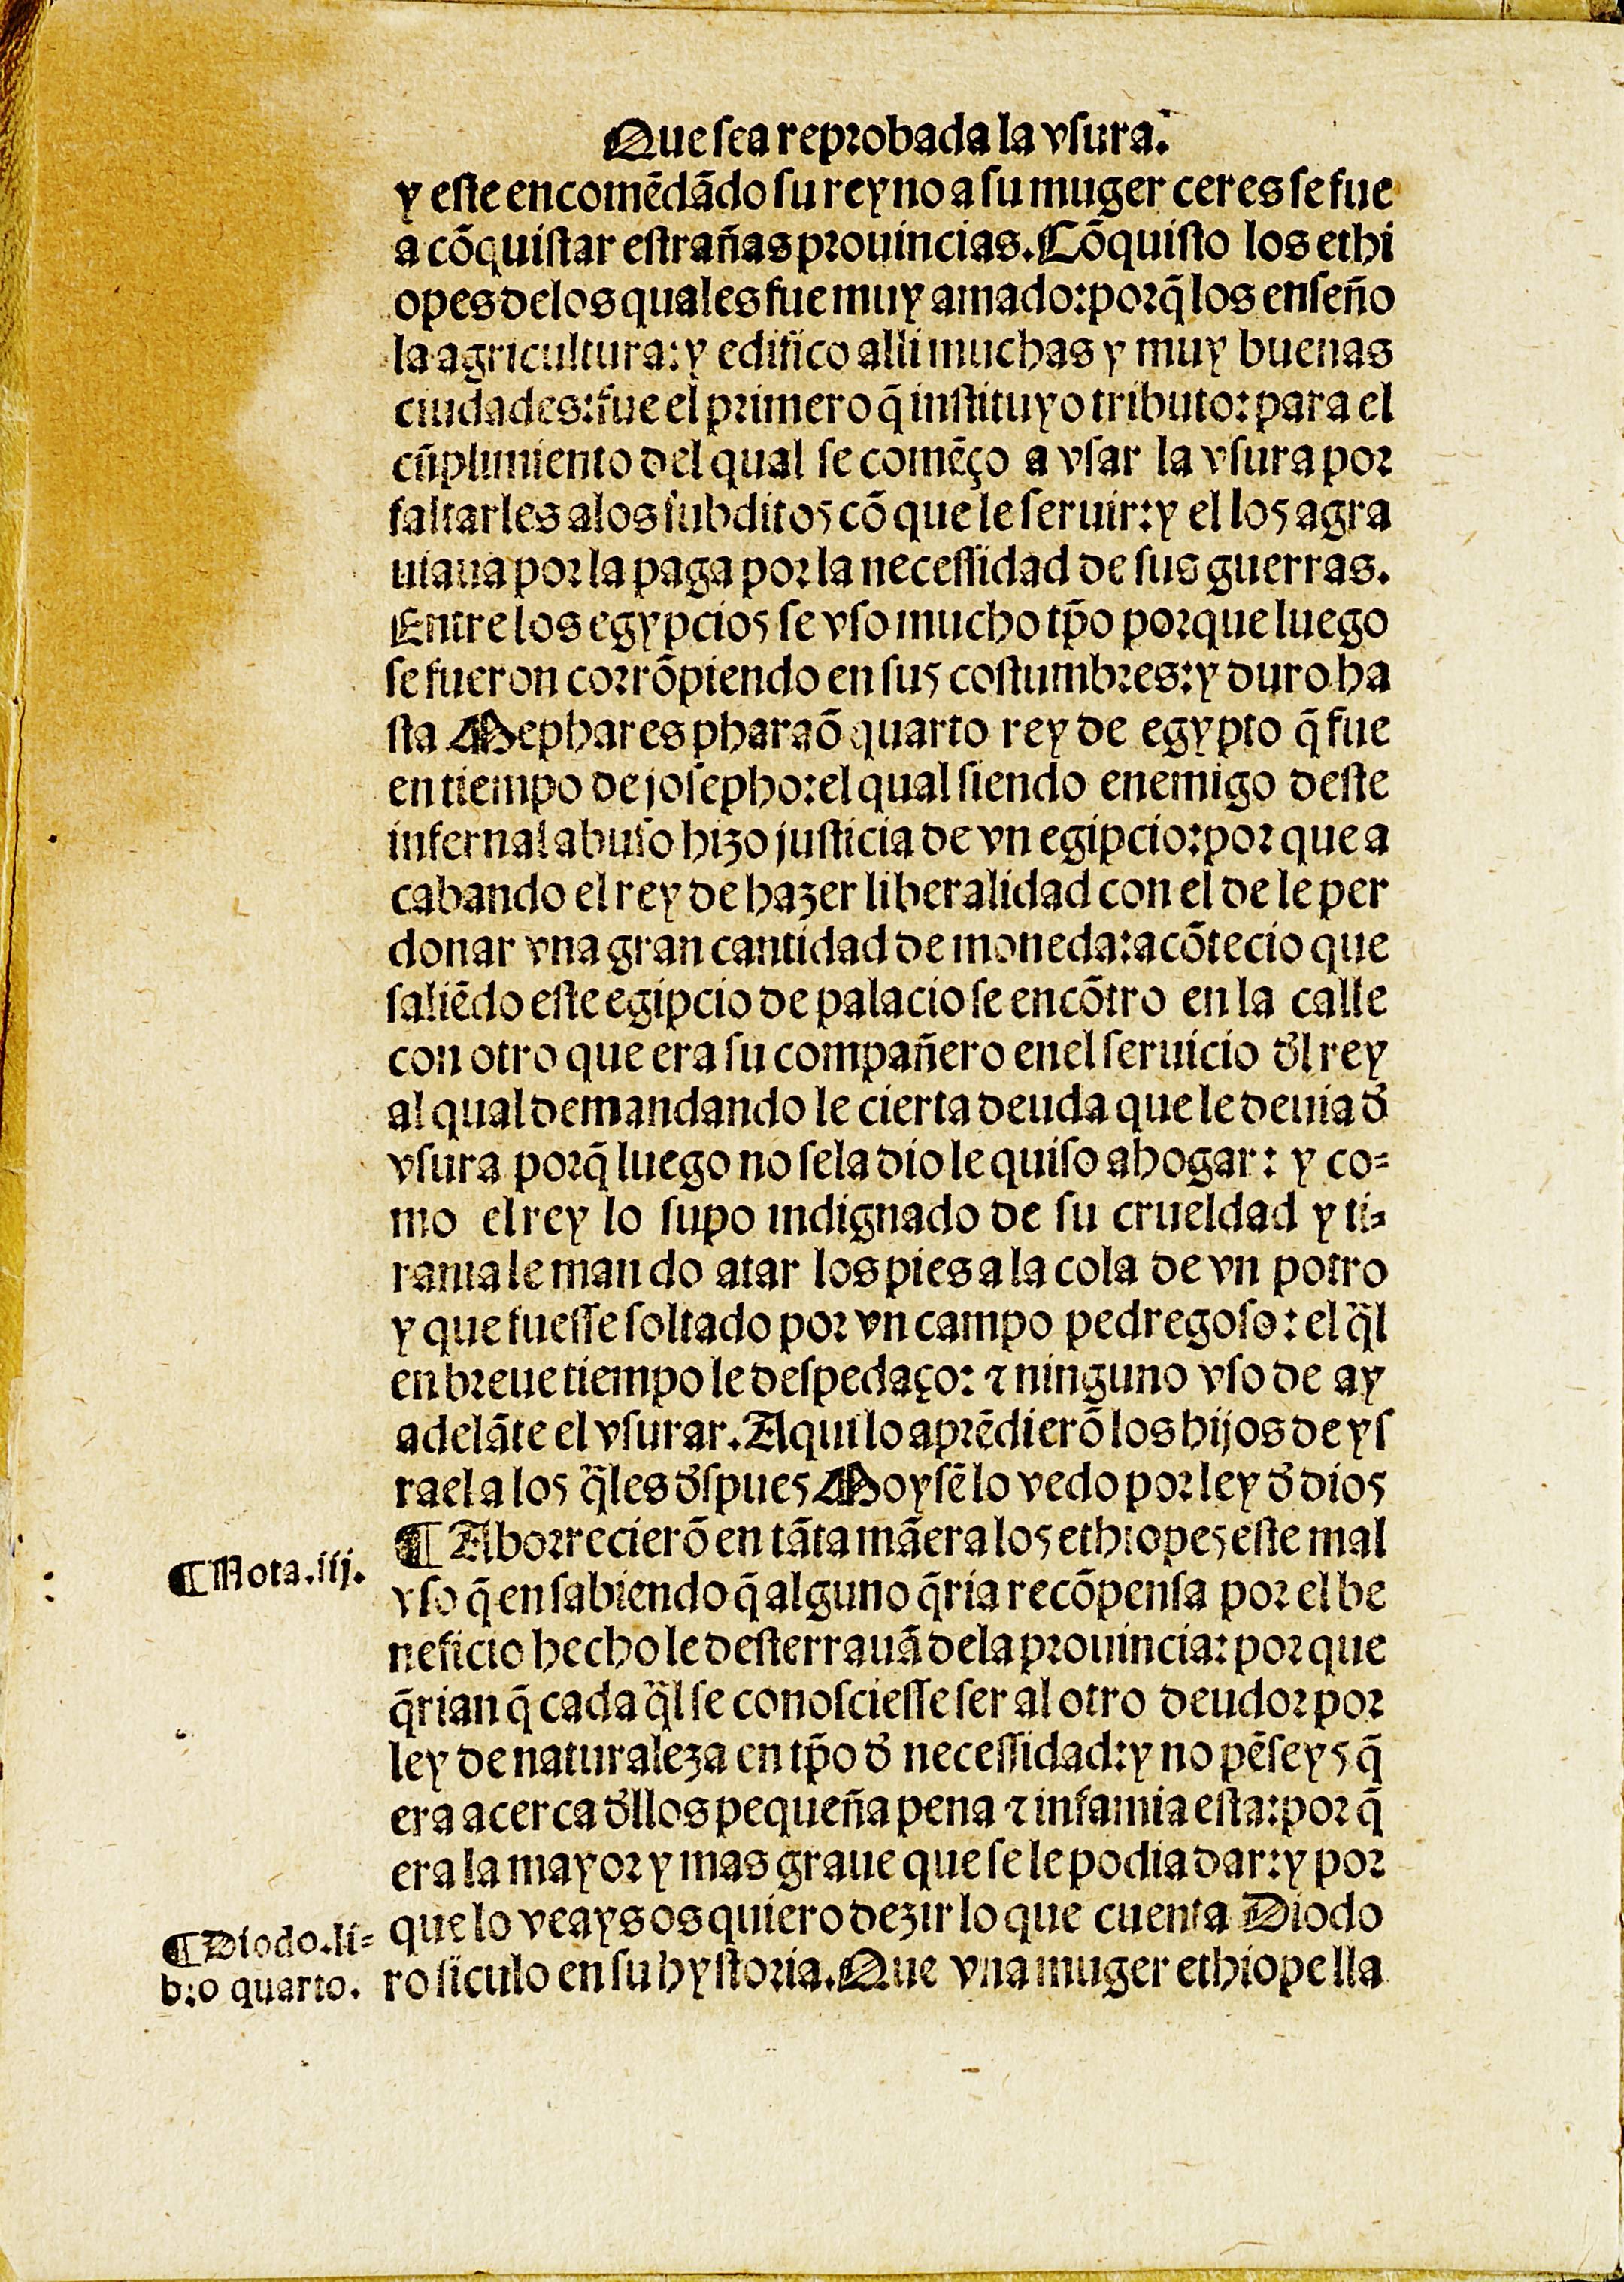 Que sea reprobada la vsura.
y este encomẽdãdo su reyno a su muger ceres se fue
a cõquistar estrañas prouincias. Cõquisto los ethi
opes delos quales fue muy amado: porq̃ los enseño
la agricultura: y edifico alli muchas y muy buenas
ciudades: fue el primero q̃ instituyo tributo: para el
cũplimiento del qual se comẽço a vsar la vsura por
faltarles alos subditos cõ que le seruir: y el los agra
uiaua por la paga por la necessidad de sus guerras.
Entre los egypcios se vso mucho tp̃o porque luego
se fueron corrõpiendo en sus costumbres: y duro ha
sta Mephares pharaõ quarto rey de egypto q̃ fue
en tiempo de josepho: el qual siendo enemigo deste
infernal abuso hizo justicia de vn egipcio: por que a
cabando el rey de hazer liberalidad con el de le per
donar vna gran cantidad de moneda: acõtecio que
saliẽdo este egipcio de palacio se encõtro en la calle
con otro que era su compañero enel seruicio d̃l rey
al qual demandando le cierta deuda que le deuia d̃
vsura porq̃ luego no sela dio le quiso ahogar: y co=
mo el rey lo supo indignado de su crueldad y ti=
rania le mando atar los pies a la cola de vn potro
y que fuesse soltado por vn campo pedregoso: el q̃l
en breue tiempo le despedaço: ⁊ ninguno vso de ay
adelãte el vsurar. Aqui lo aprẽdierõ los hijos de ys
rael a los q̃les d̃spues Moysẽ lo vedo por ley d̃ dios
¶ Aborrecierõ en tãta mãera los ethiopes este mal
¶ Nota.iij.
vso q̃ en sabiendo q̃ alguno q̃ria recõpensa por el be
neficio hecho le desterrauã dela prouincia: por que
q̃rian q̃ cada q̃l se conosciesse ser al otro deudor por
ley de naturaleza en tp̃o d̃ necessidad: y no pẽseys q̃
era acerca d̃llos pequeña pena ⁊ infamia esta: por q̃
era la mayor y mas graue que se le podia dar: y por
que lo veays os quiero dezir lo que cuenta Diodo
¶ Diodo.li=
bro quarto.
ro siculo en su hystoria. Que vna muger ethiope lla